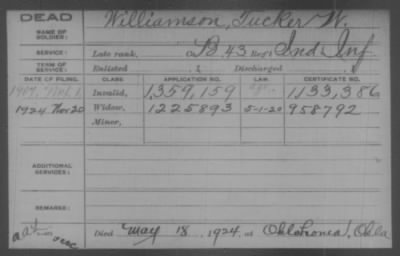 DEAD
NAME OF SOLDIER: Williamson, Tucker W.
SERVICE: Late rank, Co. B 43 Reg't Ind Inf
TERM OF SERVICE: Enlisted , 1 Discharged , 1
DATE OF FILING. CLASS. APPLICATION NO. LAW. CERTIFICATE NO.
1907 1. Invalid, 1,359,159 1,133,386
1924 Nov 20 Widow, 1225893 5-1-20 958792
Minor,
ADDITIONAL SERVICES:
REMARKS:
Died May 18, 1924, at Okla.